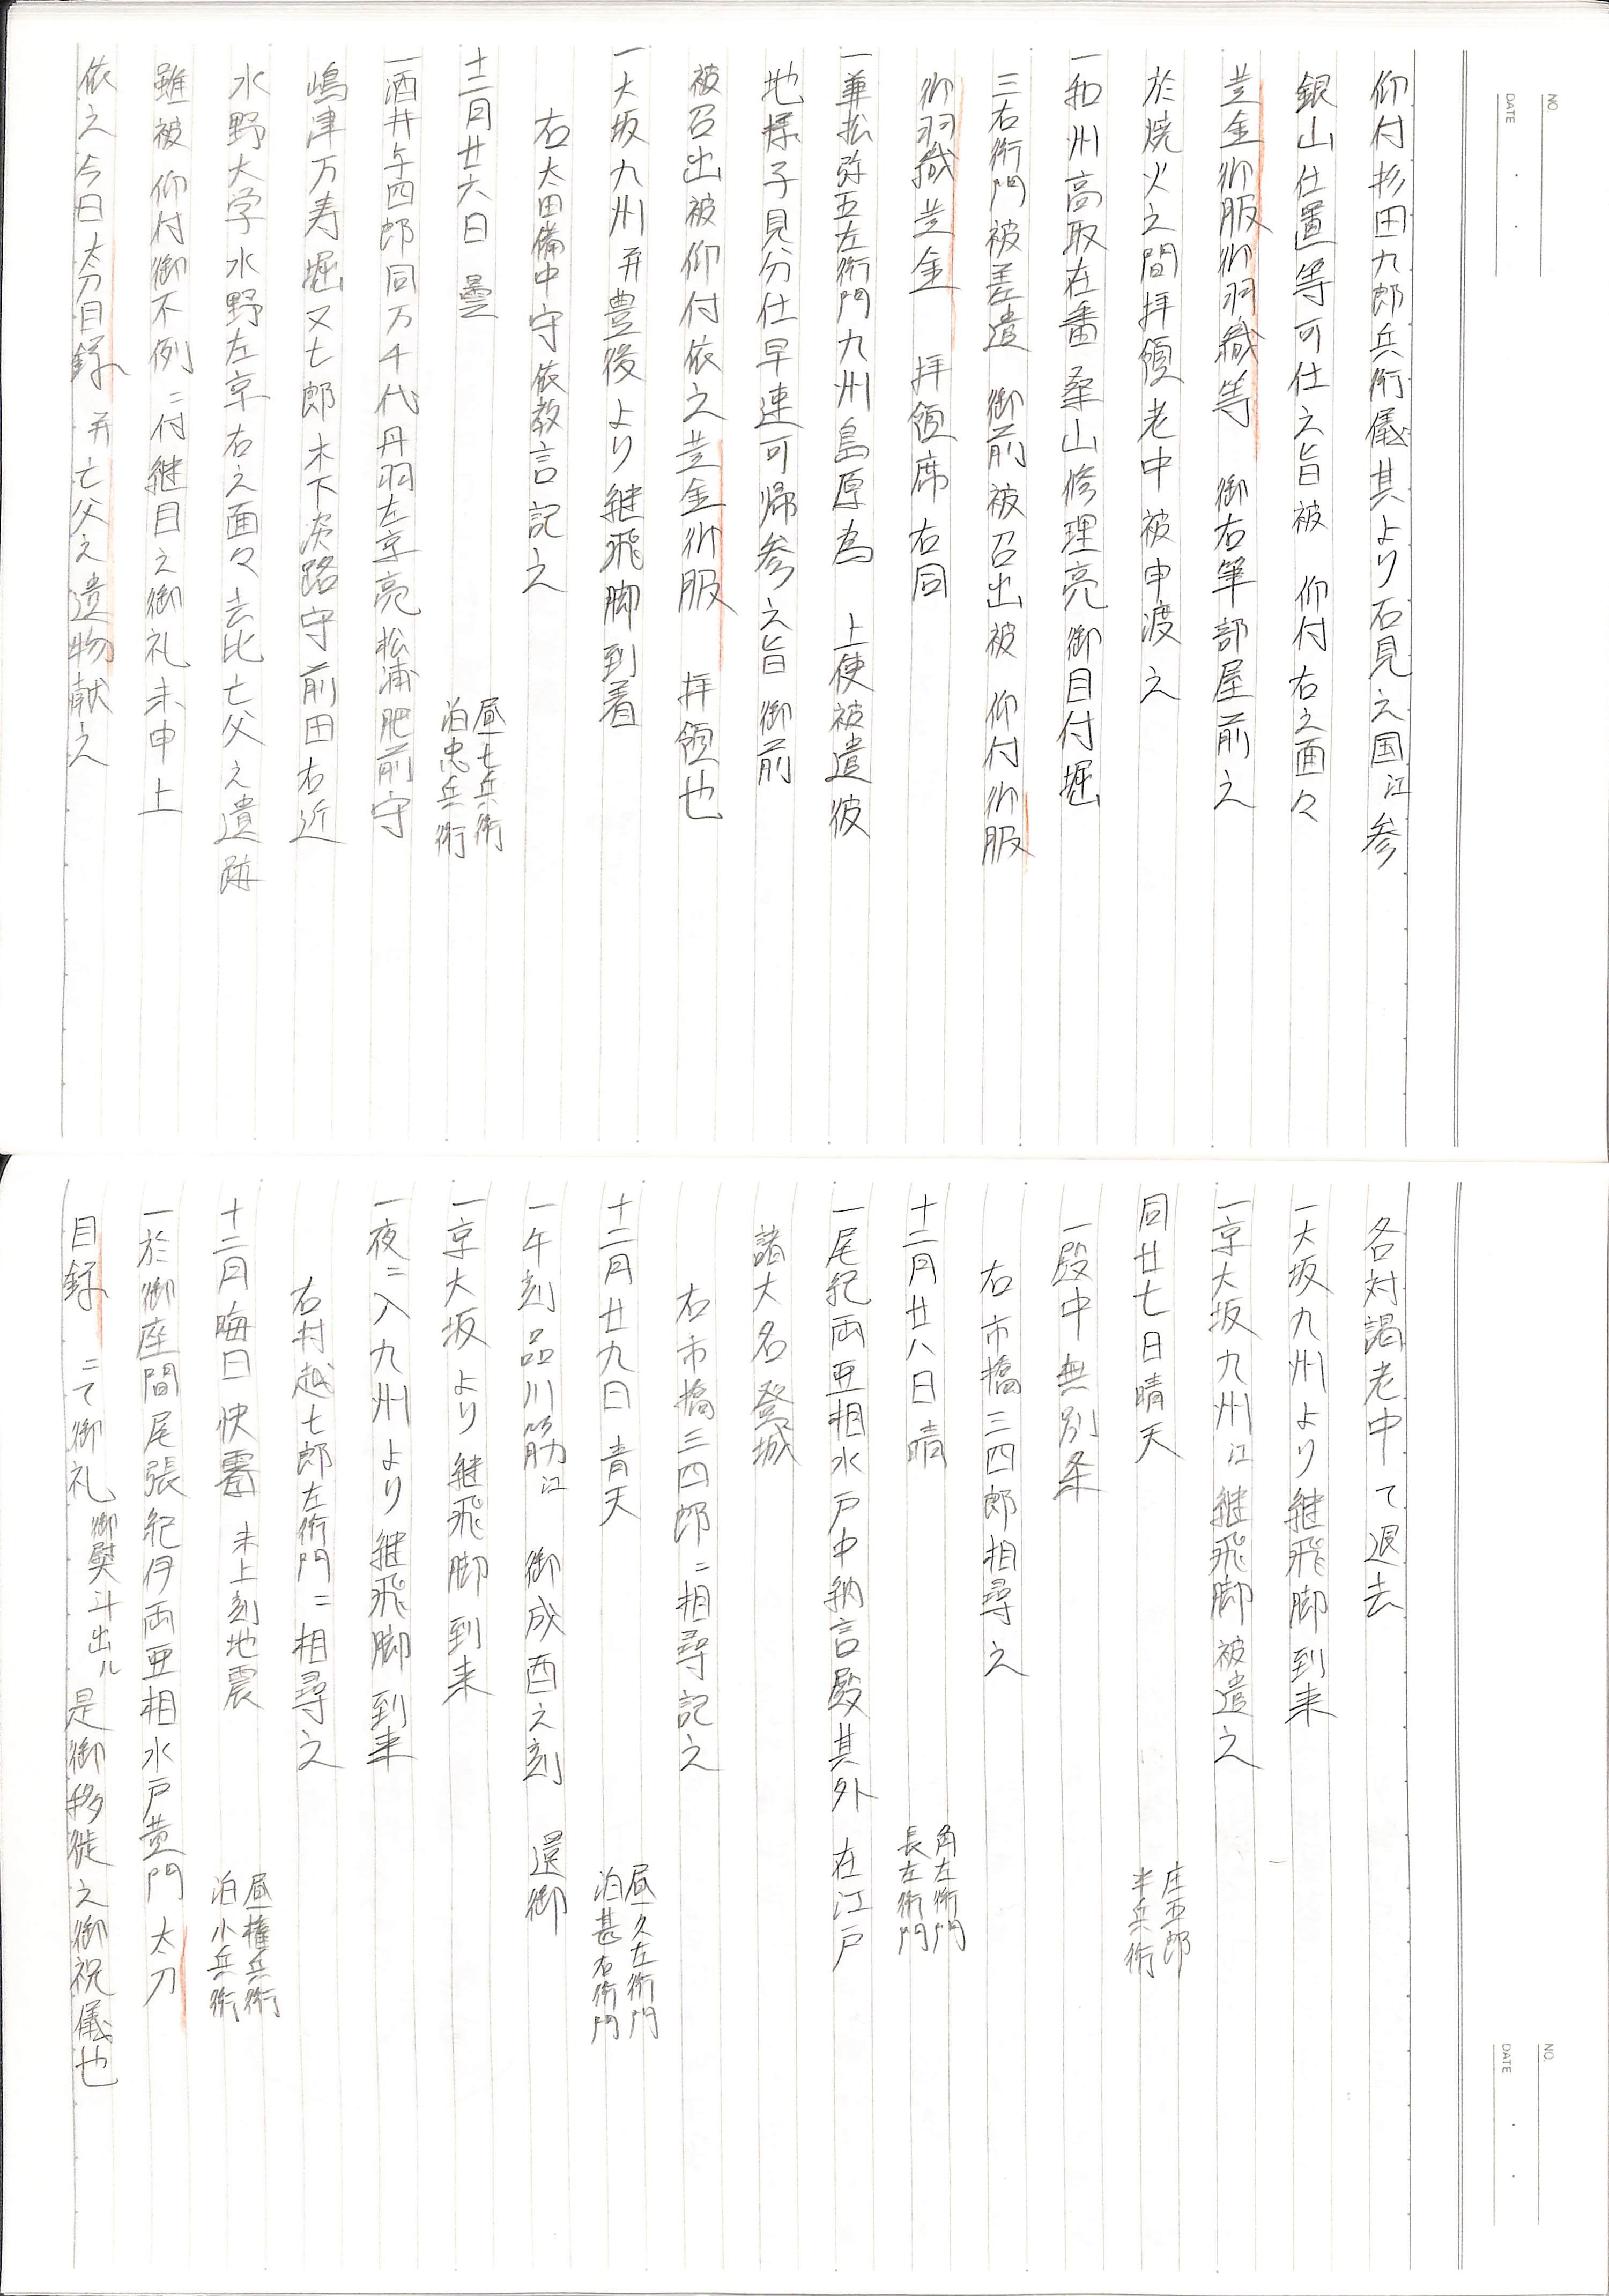 NO.
DATE
仰付杉田九郎兵衛儀其より石見之国江参
銀山仕置等可仕之旨被　仰付右之面々
黄金御服御羽織等　御右筆部屋前之
於焼火之間拝領老中被申渡之
一和州高取在番桑山修理亮御目付堀
三右衛門被差遣　御前被召出被　仰付御服
御羽織黄金　拝領席右同
一兼松弥五左衛門九州島原為　上使被遣彼
地様子見分仕早速可帰参之旨御前
被召出被仰付依之黄金御服　拝領也
一大坂九州并豊後より継飛脚到着
右太田備中守依教言記之
十二月廿六日　曇　昼七兵衛
泊忠兵衛
一酒井与四郎同万千代丹羽左京亮松浦肥前守
嶋津万寿堀又七郎木下淡路守前田右近
水野大学水野左京右之面々去比亡父之遺跡
雖被仰付御不例ニ付継目之御礼未申上
依之今日太刀目録并亡父之遺物献之
NO.
DATE
各対謁老中て退去
一大坂九州より継飛脚到来
一京大坂九州江継飛脚被遣之
同廿七日晴天　庄五郎
半兵衛
一殿中無別条
右市橋三四郎相尋之
十二月廿八日　晴　角左衛門
長左衛門
一尾紀両亜相水戸中納言殿其外　在江戸
諸大名登城
右市橋三四郎ニ相尋記之
十二月廿九日　青天　昼久左衛門
泊甚右衛門
一午刻品川筋江　御成酉之刻　還御
一京大坂より継飛脚到来
一夜ニ入九州より継飛脚到来
右村越七郎左衛門ニ相尋之
十二月晦日　快霽　未上刻地震　昼権兵衛
泊小兵衛
一於御座間尾張紀伊両亜相水戸黄門　太刀
目録　ニて御礼　御熨斗出ル　是御移徙之御祝儀也